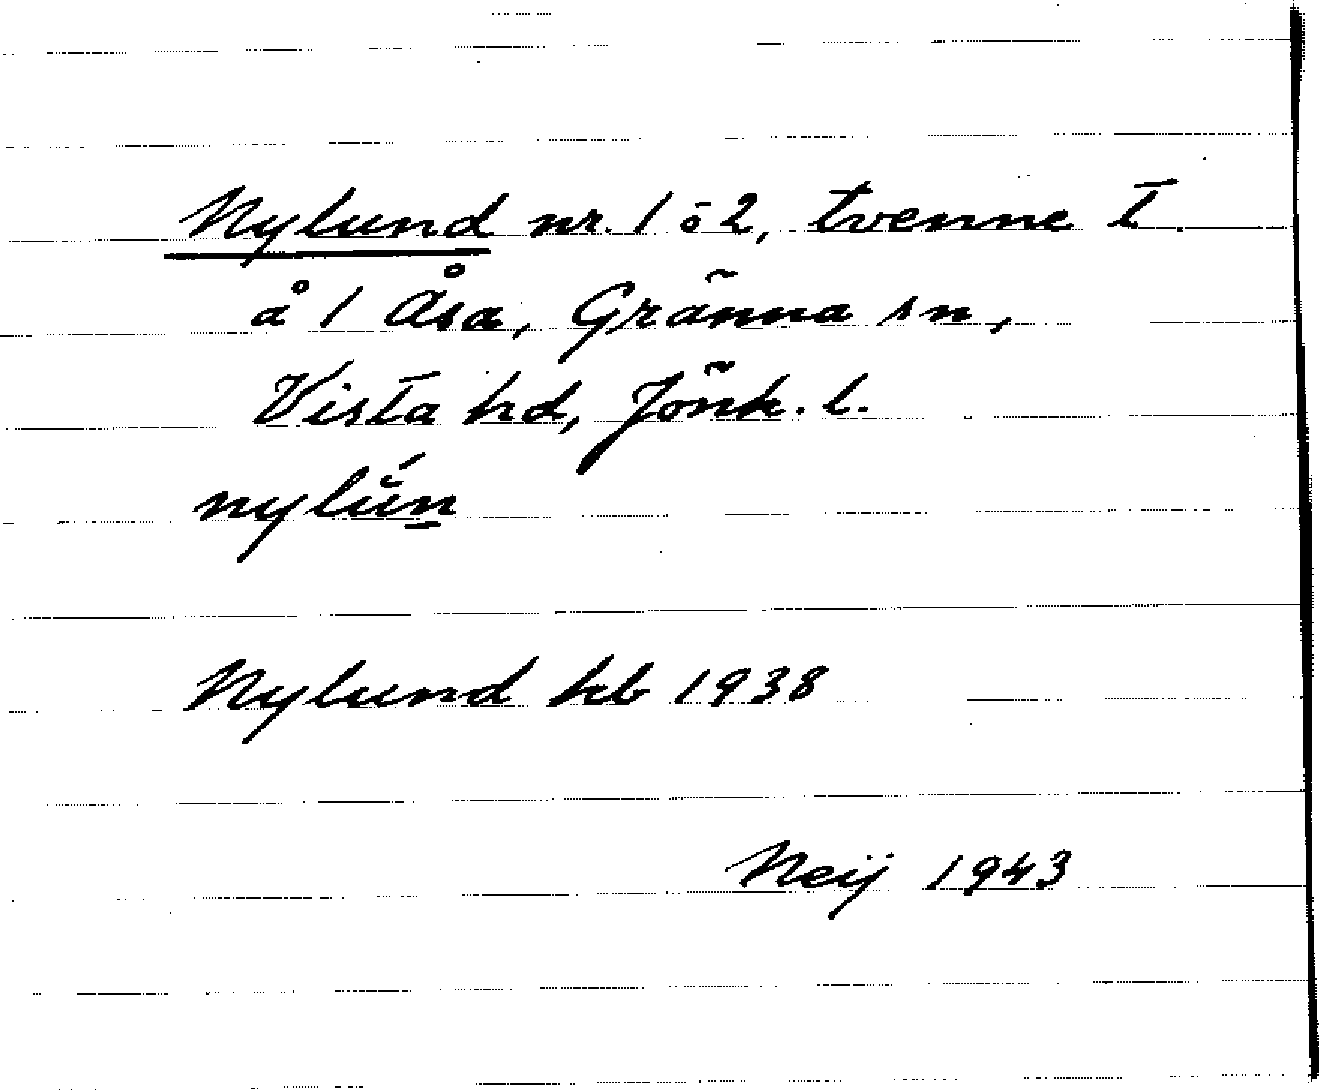 Nylund nr. 1 o 2, tvenne t
å 1 Åsa, Gränna sn,
Vista hd, Jönk. l.
nylún
Nylund hb 1938
Neij 1943